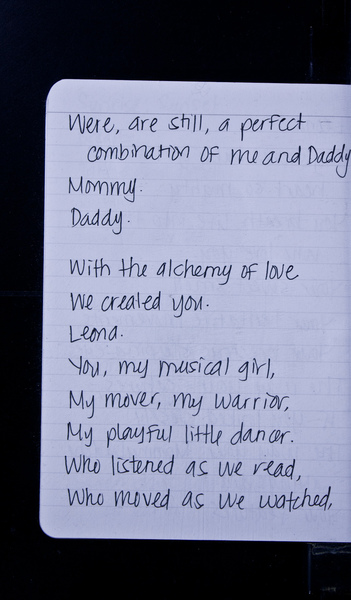 Were, are still, a perfect
combination of me and Daddy
Mommy.
Daddy.
With the alchemy of love
We created you.
Leona.
You, my musical girl,
My mover, my warrior,
My playful little dancer.
Who listened as we read,
Who moved as we watched,